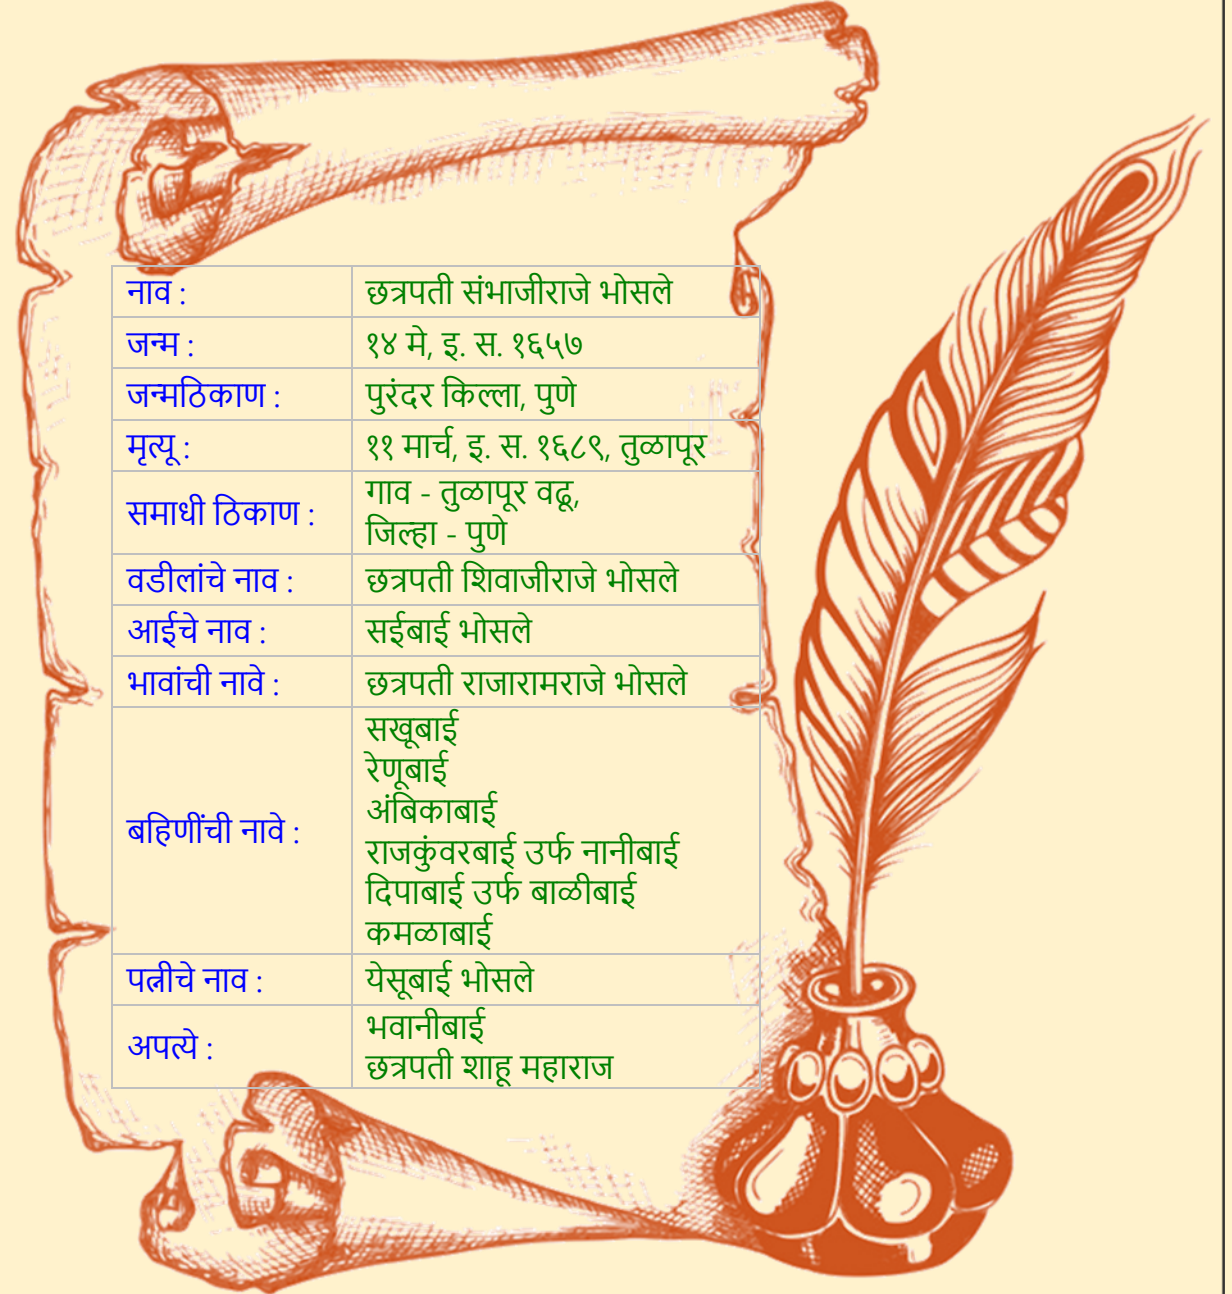 नाव : छत्रपती संभाजीराजे भोसले
जन्म : १४ मे, इ. स. १६५७
जन्मठिकाण : पुरंदर किल्ला, पुणे
मृत्यू : ११ मार्च, इ. स. १६८९, तुळापूर
समाधी ठिकाण : गाव - तुळापूर वढू,
जिल्हा - पुणे
वडीलांचे नाव : छत्रपती शिवाजीराजे भोसले
आईचे नाव : सईबाई भोसले
भावांची नावे : छत्रपती राजारामराजे भोसले
बहिणींची नावे : सखूबाई
रेणूबाई
अंबिकाबाई
राजकुंवरबाई उर्फ नानीबाई
दिपाबाई उर्फ बाळीबाई
कमळाबाई
पत्नीचे नाव : येसूबाई भोसले
अपत्ये : भवानीबाई
छत्रपती शाहू महाराज